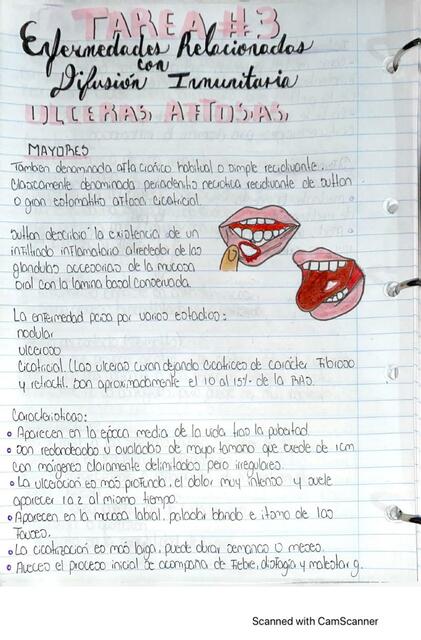 TAREA #3
Enfermedades Relacionadas
con
Difusión Inmunitaria
ULCERAS AFTOSAS
MAYORES
Tambien denominada afta cronica habitual o simple recidivante.
Clasicamente denominada periadenitis necrotica recidivante de Sutton
o gran estomatitis aftosa cicatricial.
Sutton describio la existencia de un
infiltrado inflamatorio alrededor de las
glandulas accesorias de la mucosa
oral con la lamina basal conservada.
La enfermedad pasa por varios estadios:
nodular
ulceroso
Cicatricial. (Las ulceras curan dejando cicatrices de carácter fibroso
y retractil. Son aproximadamente el 10 al 15% de la
Caracteristicas:
Aparecen en la época media de la vida tras la pubertad.
Son redondeadas u ovaladas de mayor tamano que excede de 1cm
con márgenes claramente delimitados pero irregulares.
La ulceracion es mas profunda, el dolor muy intenso y suele
aparecer 1 o 2 al mismo tiempo.
Aparecen en la mucosa labial, paladar blando e itsmo de las
fauces.
La cicatrización es mas larga, puede durar semanas o meses.
Aveces el proceso inicial se acompaña de fiebre, disfagia y malestar g.
Scanned with CamScanner